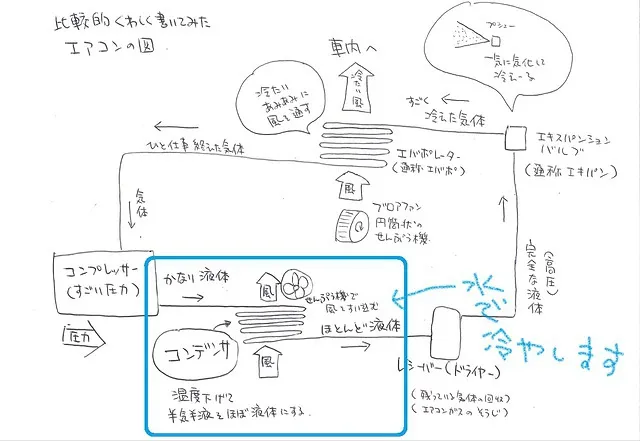 比較的くわしく書いてみた
エアコンの図
車内へ
冷たい風
冷たい
あみあみに
風を通す
プシュー
一気に気化して
冷えーる
すごく
冷えた気体
エキスパンション
バルブ
(通称エキパン)
エバポレーター
(通称エバポ)
ひと仕事終えた気体
風
ブロアファン
円筒状の
せんぷう機
気体
コンプレッサー
(すごい圧力)
圧力
かなり液体
風
せんぷう機で
風をすい込む
ほとんど液体
コンデンサ
風
温度下げて
半気半液をほぼ液体にする
(高圧)
完全な液体
レシーバー(ドライヤー)
(残っている気体の回収)
(エアコンガスのそうじ)
水で冷やします